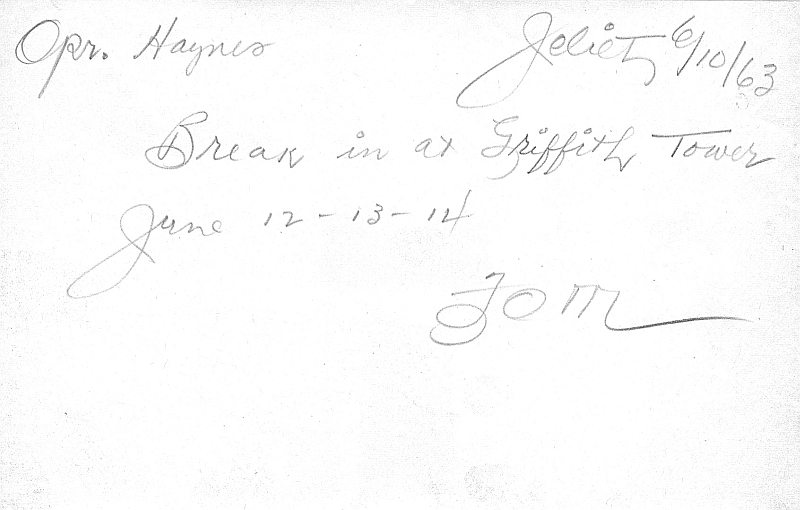 Opr. Haynes Joliet, 6/10/63
Break in at Griffith Tower
June 12-13-14
JOM